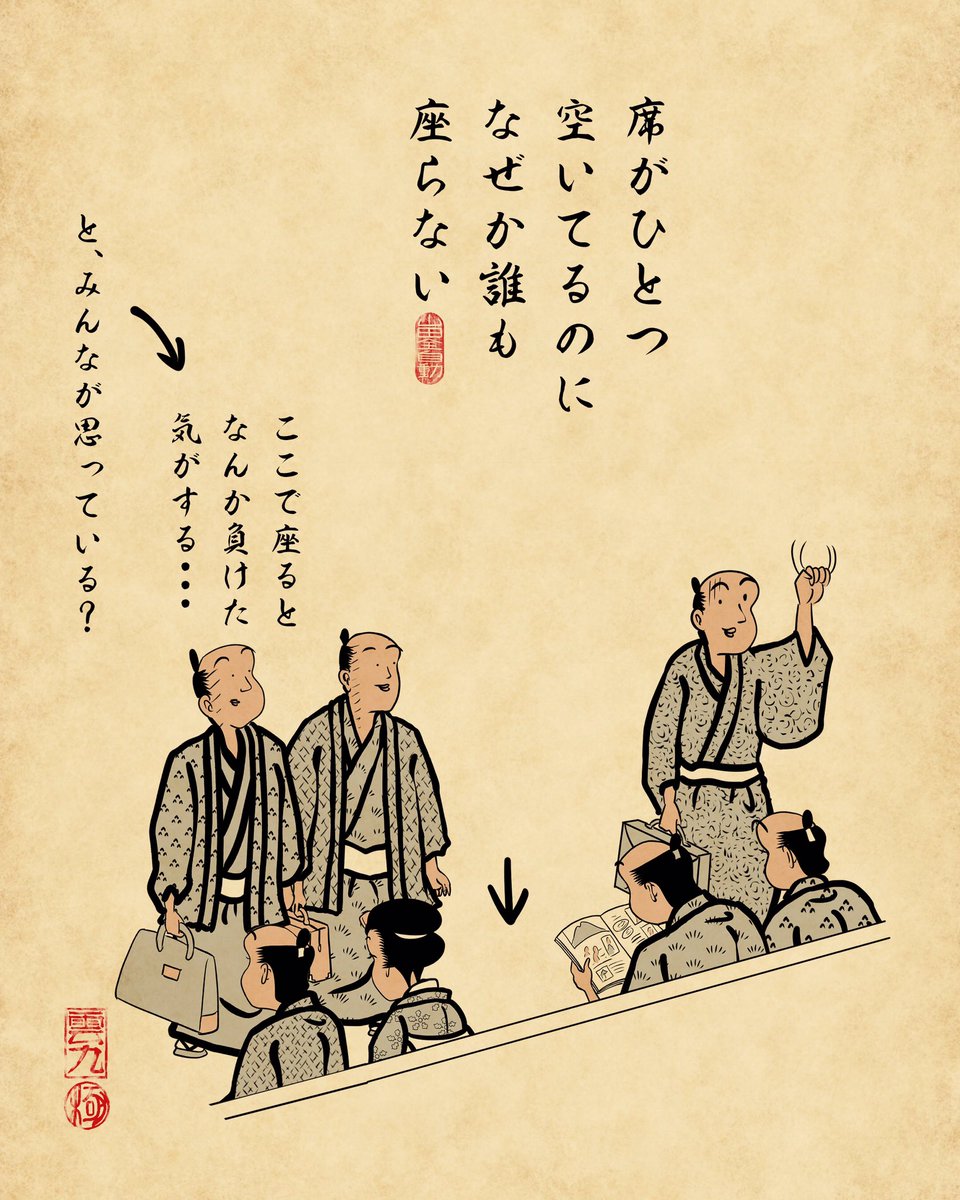 席がひとつ
空いてるのに
なぜか誰も
座らない
ここで座ると
なんか負けた
気がする・・・
と、みんなが思っている?